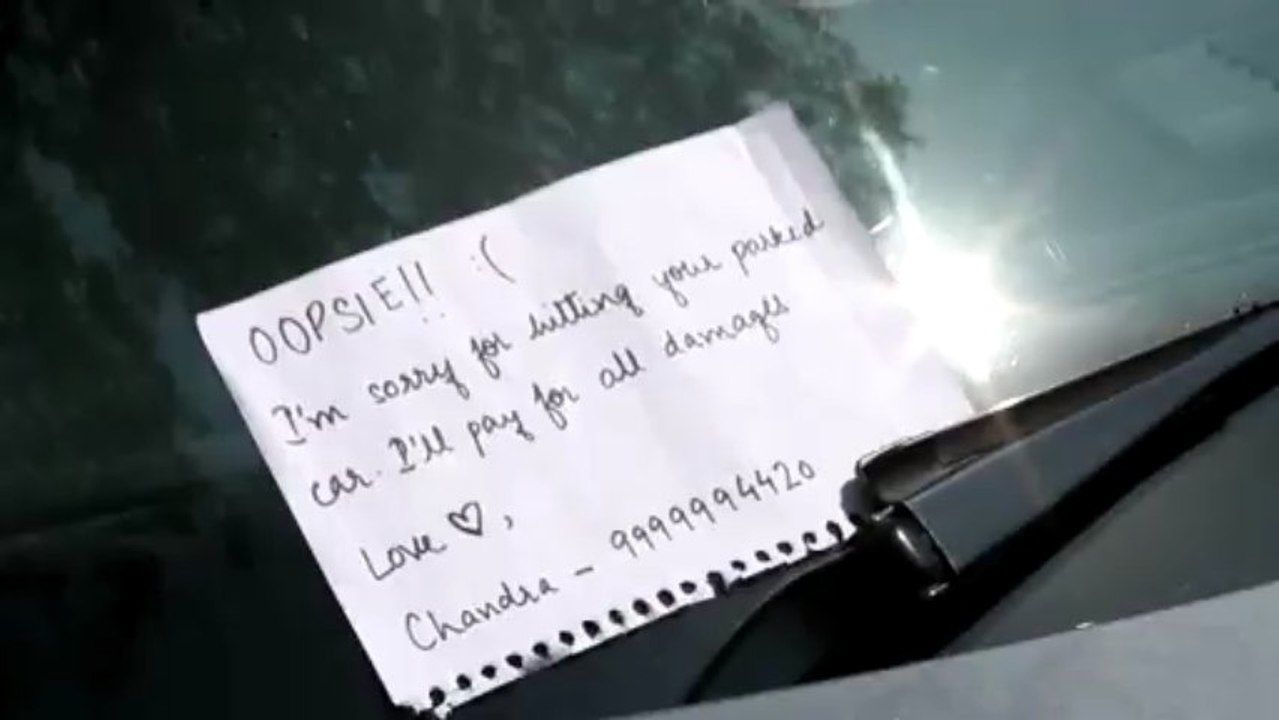 OOPSIE!! :(
I'm sorry for hitting your parked
car. I'll pay for all damages
Love ♡,
Chandra - 9999994420